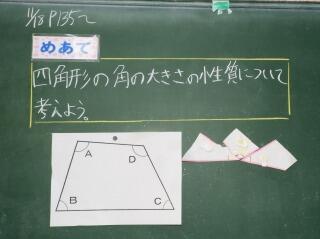 11/18 P135~
めあて
四角形の角の大きさの性質について
考えよう。
A D
B C